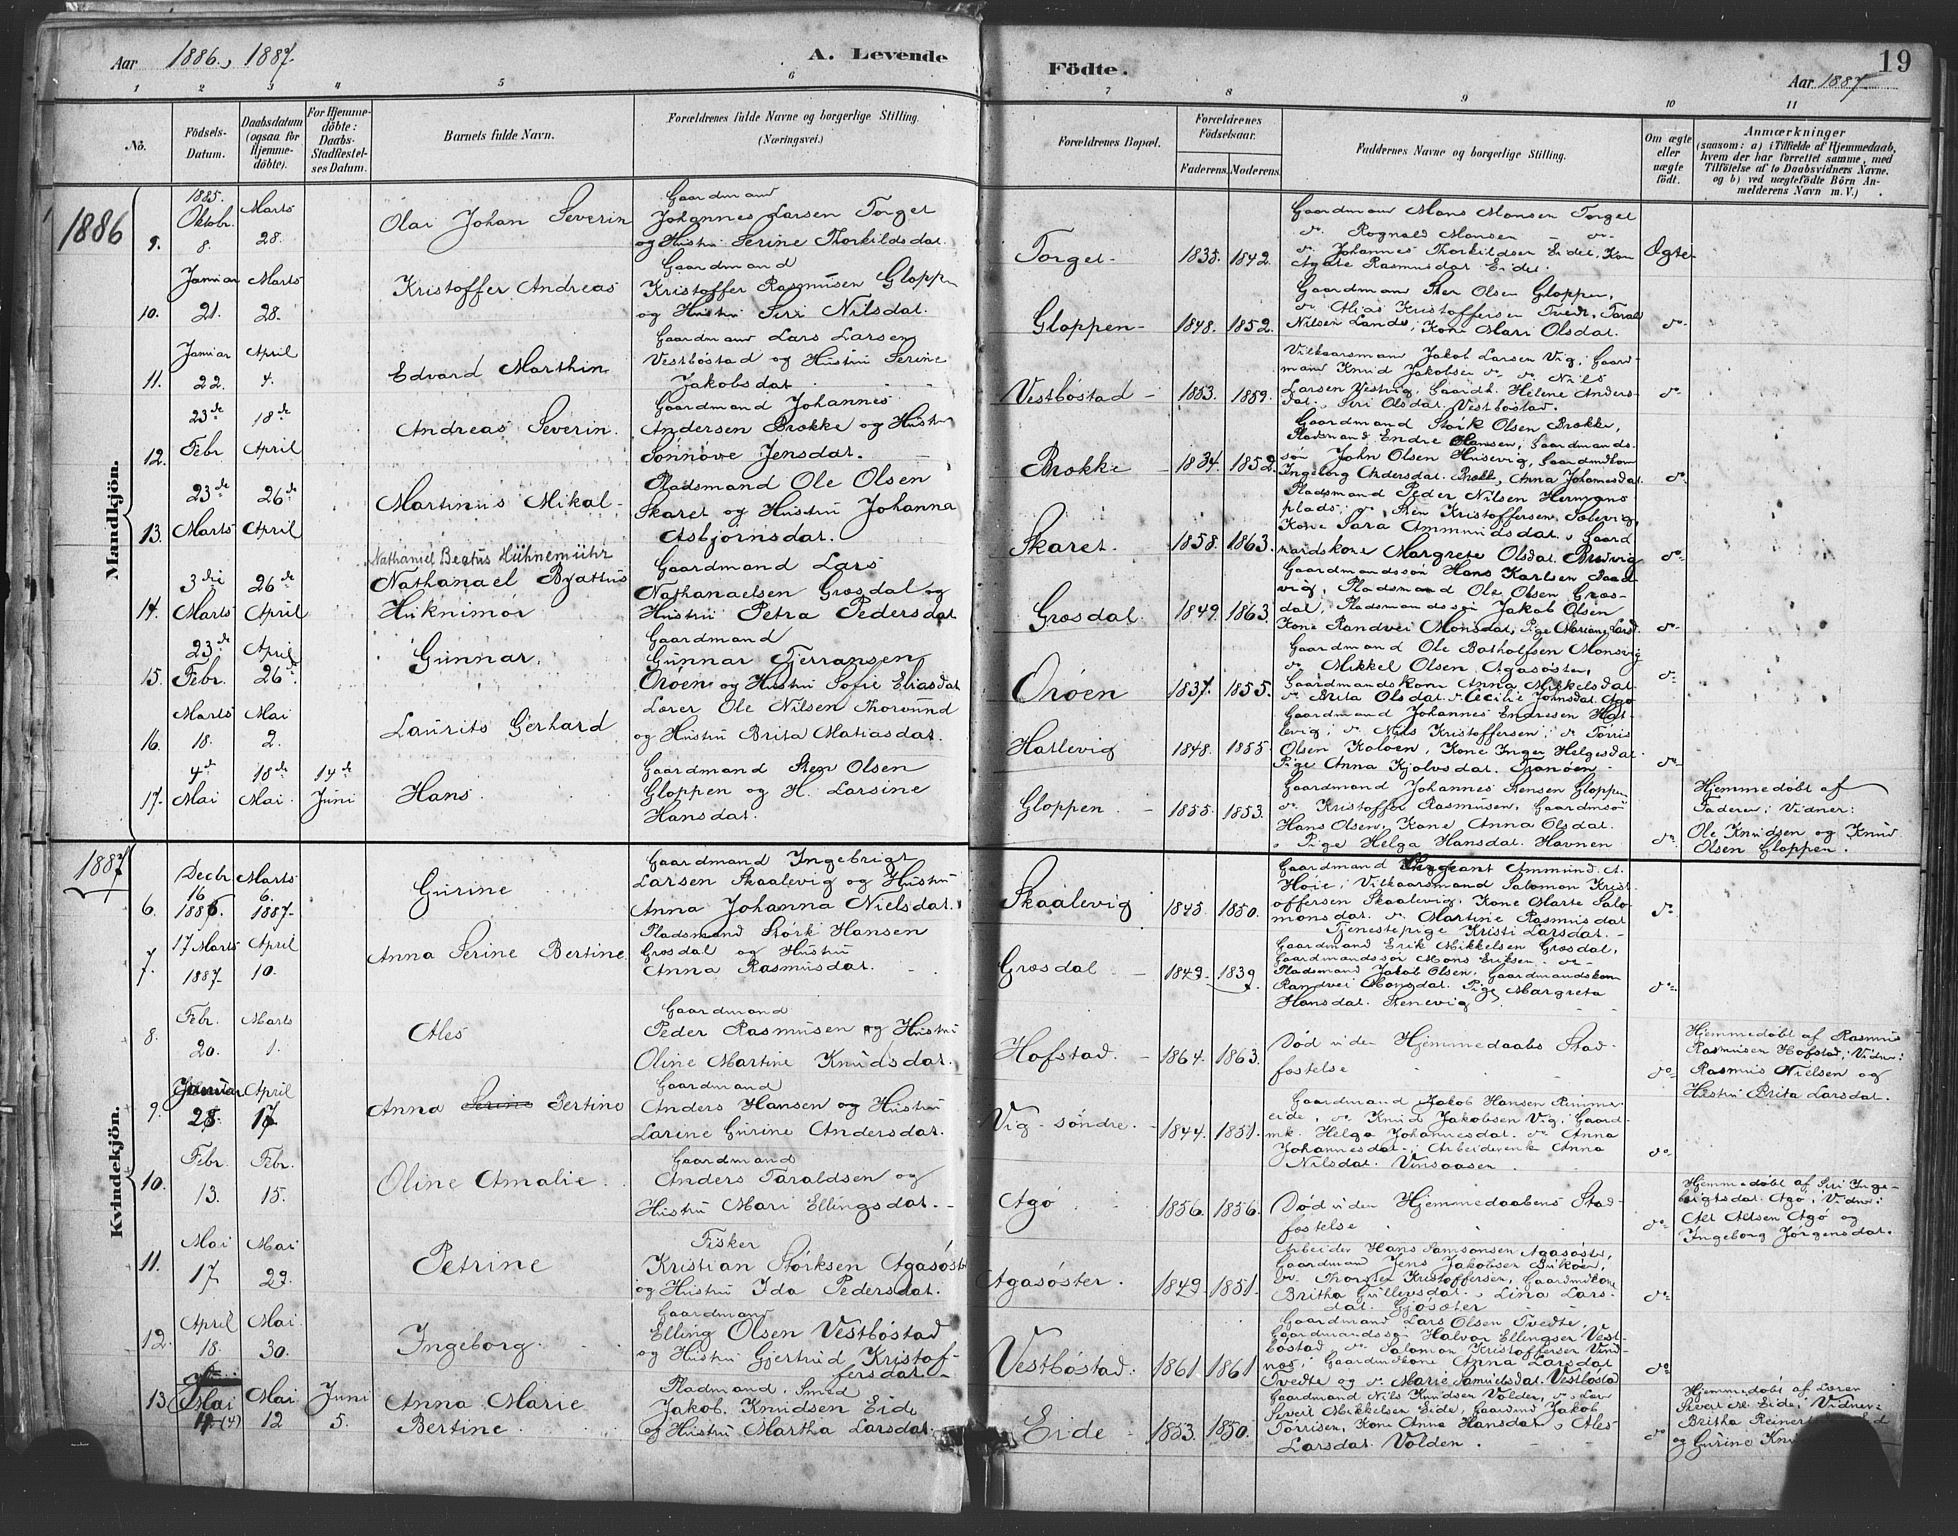 Aar 1886, 1887. A. Levende
Födte. Aar 1887 19
1 2 3 4 5 6 7 8 9 10 11
No.
Födsels-Datum.
Daabsdatum (ogsaa for Hjemme-döbte).
For Hjemme-döbte: Daabs-Stadfæstel-ses Datum.
Barnets fulde Navn.
Forældrenes fulde Navne og borgerlige Stilling. (Næringsvei.)
Forældrenes Bopæl.
Forældrenes Födselsaar.
Faderens. Moderens.
Faddernes Navne og borgerlige Stilling.
Om ægte eller uægte födt.
Anmærkninger
(saasom: a) i Tilfælde af Hjemmedaab, hvem der har forrettet samme, med Tilföielse af to Daabsvidners Navne. og b) ved uægtefödte Börn An-melderens Navn m. V.)
1886
Mandkjön.
9. 1885. Oktobr. 8. Marts 28. Olai Johan Severin
Gaardmand
Johannes Larsen Torget
og Hustru Serine Thorkildsdat.
Torget 1835. 1842.
Gaardmand Mons Monsen Torget
do Rognald Monsen - do
do Johannes Thorkildsen Eidet, Kon
Agate Rasmusdat Eidet.
Ægte
10. Januar 21. Marts 28. Kristoffer Andreas
Gaardmand
Kristoffer Rasmusen Gloppen
og Hustru Siri Nilsdat.
Gloppen 1848. 1852.
Gaardmand Sten Olsen Gloppen,
do Elias Kristoffersen Tvedt, Tarald
Nilsen Lands, Kone Mari Olsdat.
do
11. Januar 22. April 4. Edvard Marthin
Gaardmand Lars Larsen
Vestböstad og Hustru Serine
Jakobsdat.
Vestböstad 1853. 1859.
Vilkaarsmand Jakob Larsen Vig, Gaard-
mand Knud Jakobsen do do Nils
Larsen Vestvig, Gaardk. Helene Anders-
dat., Siri Olsdat. Vestböstad.
do
12. 23de Febr 18de April Andreas Severin.
Gaardmand Johannes
Andersen Brække og Hustru
Sönnöve Jensdat.
Brække 1834. 1852.
Gaardmand Störk Olsen Brække,
Pladsmand Endre Hansen, Gaardmands-
sön John Olsen Husevig, Gaardmdkone
Ingeborg Andersdat. Brækk, Anna Johannesdat
do
13. 23de Marts 26de April Martinus Mikal
Pladsmand Ole Olsen
Skaret og Hustru Johanna
Asbjörnsdat.
Skaret. 1858. 1863.
Pladsmand Peder Nilsen Hermans
plads, do Sten Kristoffersen, Sælevig,
Kone Sara Ammundsdat., Gaard
mandskone Margrete Olsdat. Bredvig
do
14. 3die Marts 26de April
Nathaniel Beatus Hühnemühr
Nathanael Byattus
Huknimör
Gaardmand Lars
Nathanaelsen Græsdal og
Hustru Petra Pedersdat
Græsdal. 1849. 1863.
Gaardmandssön Hans Karlsen Daal
vig, Pladsmand Ole Olsen Græs-
dal, Pladsmandssön Jakob Olsen
Kone Randvei Monsdat, Pige Mariane Larsd.
do
15. 23de Febr. April 26de Gunnar.
Gaardmand
Gunnar Tjerransen
Oröen og Hustru Sofie Eliasdat
Oröen 1837. 1855.
Gaardmand Ole Batholfsen Monsvig
do Mikkel Olsen, Agasöster,
Gaardmandskone Anna Mikkelsdat.
do Brita Olsdat. do Cecilie Johnsdat. Agö
do
16. Marts 18. Mai 2. Laurits Gerhard
Lærer Ole Nilsen Thorsund
og Hustru Brita Matiasdat.
Hatlevig 1848. 1855.
Gaardmand Johannes Endresen Hat-
levig, do Nils Kristoffersen, do Törris
Olsen Koloen, Kone Inger Helgesdat.
Pige Anna Kjolvsdat. Tranöen
do
17. 4de Mai 18de Mai. 14de Juni Hans.
Gaardmand Sten Olsen
Gloppen og H. Larsine
Hansdat.
Gloppen 1855. 1853.
Gaardmand Johannes Stensen Gloppen
do Kristoffer Rasmusen, Gaardmsön
Hans Olsen, Kone Anna Olsdat.
, Pige Helga Hansdat. Havnen
do
Hjemmedöbt af
Faderen; Vidner:
Ole Knudsen og Knud
Olsen Gloppen.
1887
Kvindekjön.
6. Decbr 16 1886. Marts 6. 1887. Gurine
Gaardmand Ingebrigt
Larsen Skaalevig og Hustru
Anna Johanna Nielsdat.
Skaalevig 1845. 1850.
Gaardmand Sergeant Ammund A.
Höie, Vilkaarsmand Salomon Krist-
offersen Skaalevig, Kone Marte Salo
monsdat. do Martine Rasmusdat
Tjenestepige Kristi Larsdat.
do
7. 17 Marts 1887. April 10. Anna Serine Bertine
Pladsmand Störk Hansen
Græsdal og Hustru
Anna Rasmusdat.
Græsdal 1849. 1839.
Gaardmand Erik Mikkelsen Græsdal,
Gaardmandssön Mons Eriksen. do
Pladsmand Jakob Olsen, Gaardmandskone
Randvei Monsdat. Pige Margreta
Hansdat. Stenevig
do
8. Febr. 20. Marts 1. Ales
Gaardmand
Peder Rasmusen og Hustru
Oline Martine Knudsdat.
Hofstad. 1864. 1863.
Död uden Hjemmedaabs Stad-
fæstelse
do
Hjemmedöbt af Rasmus
Rasmusen Hofstad, Vidner:
Rasmus Nielsen og
Hustru Brita Larsdat.
9. Januar 28. April 17 Anna Serine Bertine
Gaardmand
Anders Hansen og Hustru
Larine Gurine Andersdat.
Vig söndre. 1844. 1851.
Gaardmand Jakob Hansen Rimme-
eide, do Knud Jakobsen Vig, Gaard-
mk. Helga Johannesdat. do Anna
Johannesdat., Arbeiderenk Anna
Nilsdat. Vinsaasen
do
10. Febr. 13. Febr. 15. Oline Amalie.
Gaardmand
Anders Taraldsen og
Hustru Mari Ellingsdat.
Agö 1856. 1856.
Död uden Hjemmedaabens Stad
fæstelse
do
Hjemmedöbt af Siri Inge-
brigtsdat. Agö, Vidner:
Alt Altsen Agö og
Ingeborg Jörgensdat.
11. Mai 17 Mai 29. Petrine
Fisker
Kristian Störksen Agasöst
og Hustru Ida Pedersdat.
Agasöster. 1849. 1851.
Arbeider Hans Samsonsen Agasöster,
Gaardmand Jens Jakobsen Briköen,
do Thorsten Kristoffersen, Gaardmdkone
Britha Gullevsdat. , Lina Lars-
dat. Gjösæter
do
12. April 18. Mai 30. Ingeborg.
Gaardmand
Elling Olsen Vestböstad
og Hustru Gjertrud Kristof-
fersdat.
Vestböstad. 1861 1861
Gaardmand Lars Olsen Tvedte,
Gaardmandssön Halvor Ellingsen Vest-
böstad do Salomon Kristoffersen Vind-
næs, Gaardmdkone Anna Larsdat
Tvedte og do Marie Samuelsdat. Vestböstad
do
13 Mai 11 (4) Mai 12 Juni 5. Anna Marie
Bertine.
Pladmand, Smed
Jakob Knudsen Eide
og Hustru Martha Larsdat.
Eide 1853. 1850.
Gaardmand Nils Knudsen Volden, do Lars
Sivert Mikkelsen Eide, Gaardmd Jakob
Törrisen, Kone Anna Hansdat., Ales
Larsdat. Volden.
do
Hjemmedöbt af Læreren
Sivert M. Eide, Vidner:
Britha Reinert
og Gurine